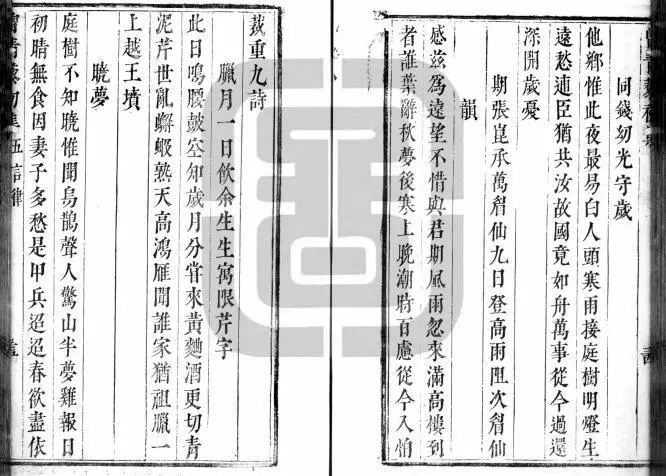 同錢幼光守歲
他鄉惟此夜最易白人頭寒雨接庭樹明燈生
遠愁逋臣猶共汝故國竟如舟萬事從今過還
深開歲憂
期張崑承萬曶仙九日登高雨阻次曶仙
韻
感茲為遠望不惜與君期風雨忽來滿高樓到
者誰葉辭秋夢後寒上晚潮時百慮從今入怕
裁重九詩
臘月一日飲余生生寓限芹字
此日鳴腰鼓空知歲月分嘗來黃麯酒更切青
泥芹世亂蠏蝦熟天高鴻雁聞誰家猶祖臘一
上越王墳
曉夢
庭樹不知曉惟聞鳥鵲聲人驚山半夢雞報日
初晴無食因妻子多愁是甲兵迢迢春欲盡依